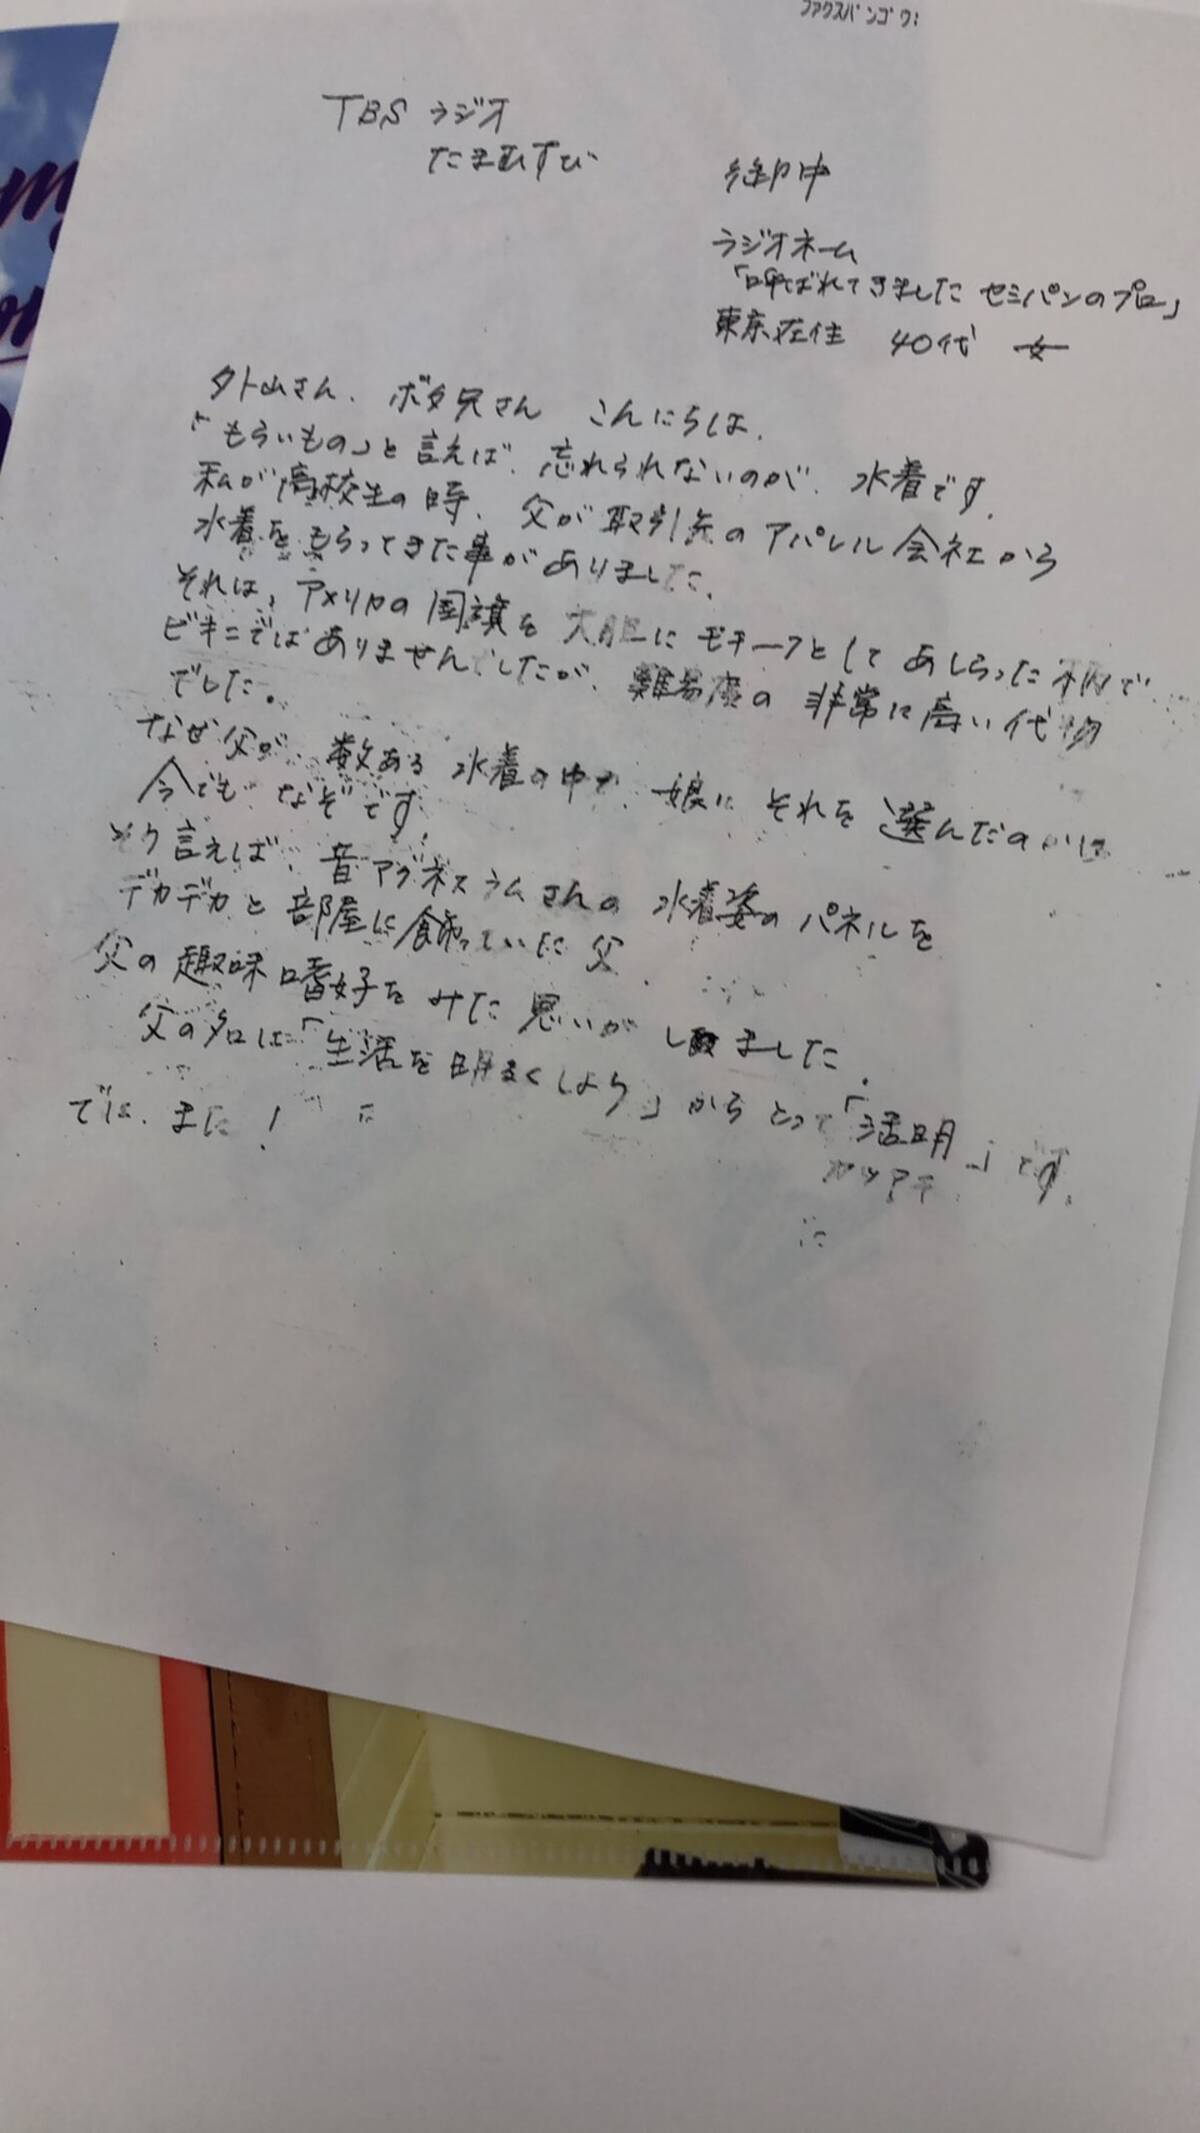 ファクスバンゴウ:
TBSラジオ
たまむすび
御中
ラジオネーム
「呼ばれてきました セミパンのプロ」
東京在住 40代 女
外山さん、ボタ兄さん こんにちは.
「もらいもの」と言えば、忘れられないのが、水着です.
私が高校生の時、父が取引先のアパレル会社から
水着をもらってきた事がありました.
それは、アメリカの国旗を大胆にモチーフとしてあしらった柄で
ビキニではありませんでしたが、難易度の非常に高い代物
でした。
なぜ父が、数ある水着の中で、娘にそれを選んだのかは
今でもなぞです.
そう言えば、昔アグネスラムさんの水着姿のパネルを
デカデカと部屋に飾っていた父.
父の趣味嗜好をみた思いがしました.
父の名は「生活を明るくしよう」からとって「活明」です.
カツアキ
では、また!